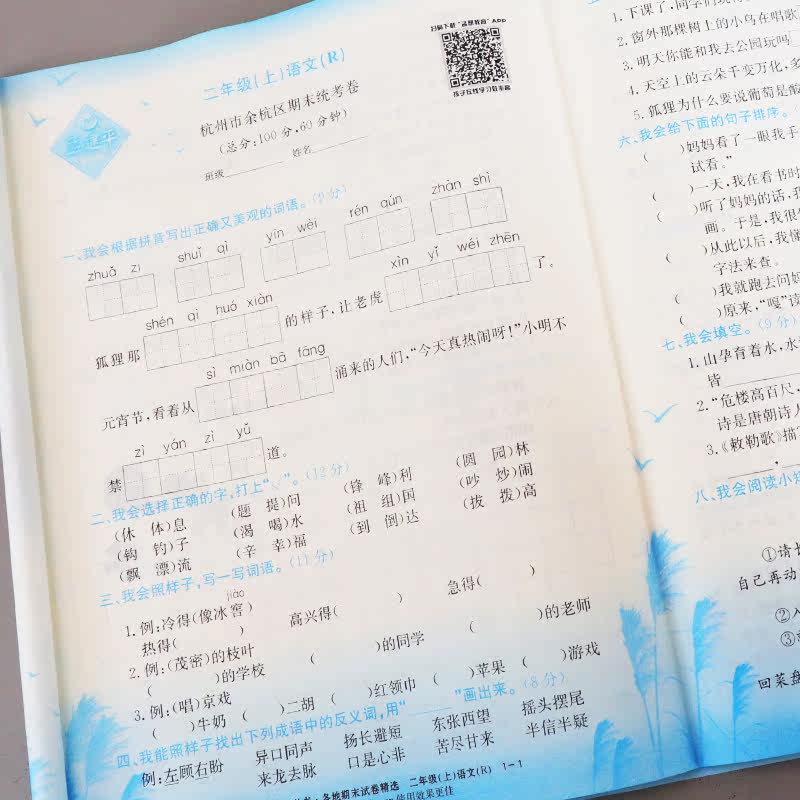 扫码下载“孟想教育”App
孩子在线学习效率高
孟建平
二年级(上)语文(R)
杭州市余杭区期末统考卷
(总分:100分,60分钟)
班级 姓名
一、我会根据拼音写出正确又美观的词语。(9分)
zhuā zi shuǐ qì yīn wèi rén qún zhàn shì
shén qì huó xiàn xìn yǐ wéi zhēn
狐狸那 的样子,让老虎 了。
sì miàn bā fāng
元宵节,看着从 涌来的人们,“今天真热闹呀!”小明不
zì yán zì yǔ
禁 道。
二、我会选择正确的字,打上“√”。(12分)
(休 体)息 (题 提)问 (锋 峰)利 (圆 园)林
(钩 钓)子 (渴 喝)水 (祖 组)国 (吵 炒)闹
(飘 漂)流 (辛 幸)福 (到 倒)达 (拔 拨)高
三、我会照样子,写一写词语。(11分)
jiào
1.例:冷得(像冰窖) 高兴得( ) 急得( )
热得( )
2.例:(茂密)的枝叶 ( )的同学 ( )的老师
( )的学校
3.例:(唱)京戏 ( )二胡 ( )红领巾 ( )苹果 ( )游戏
( )牛奶
四、我能照样子找出下列成语中的反义词,用“ ”画出来。(8分)
例:左顾右盼 异口同声 扬长避短 东张西望 摇头摆尾
来龙去脉 口是心非 苦尽甘来 半信半疑
各地期末试卷精选 二年级(上)语文(R) 1-1
使用效果更佳
1.下课了,同学们
2.窗外那棵树上的小鸟在唱歌
3.明天你能和我去公园玩吗
4.天空上的云朵千变万化,多
5.狐狸为什么要说葡萄是酸
六、我会给下面的句子排序。(
( )妈妈看了一眼我手
试看。”
( )一天,我在看书时
( )听了妈妈的话,我
画。于是,我很
( )从此以后,我懂
字法来查。
( )我就跑去问妈
( )原来,“嘎”读
七、我会填空。(9分)
1.山孕育着水,水
皆
2.“危楼高百尺,
诗是唐朝诗人
3.《敕勒歌》描
八、我会阅读小短
①请长
自己再动
②入
③
回菜盘